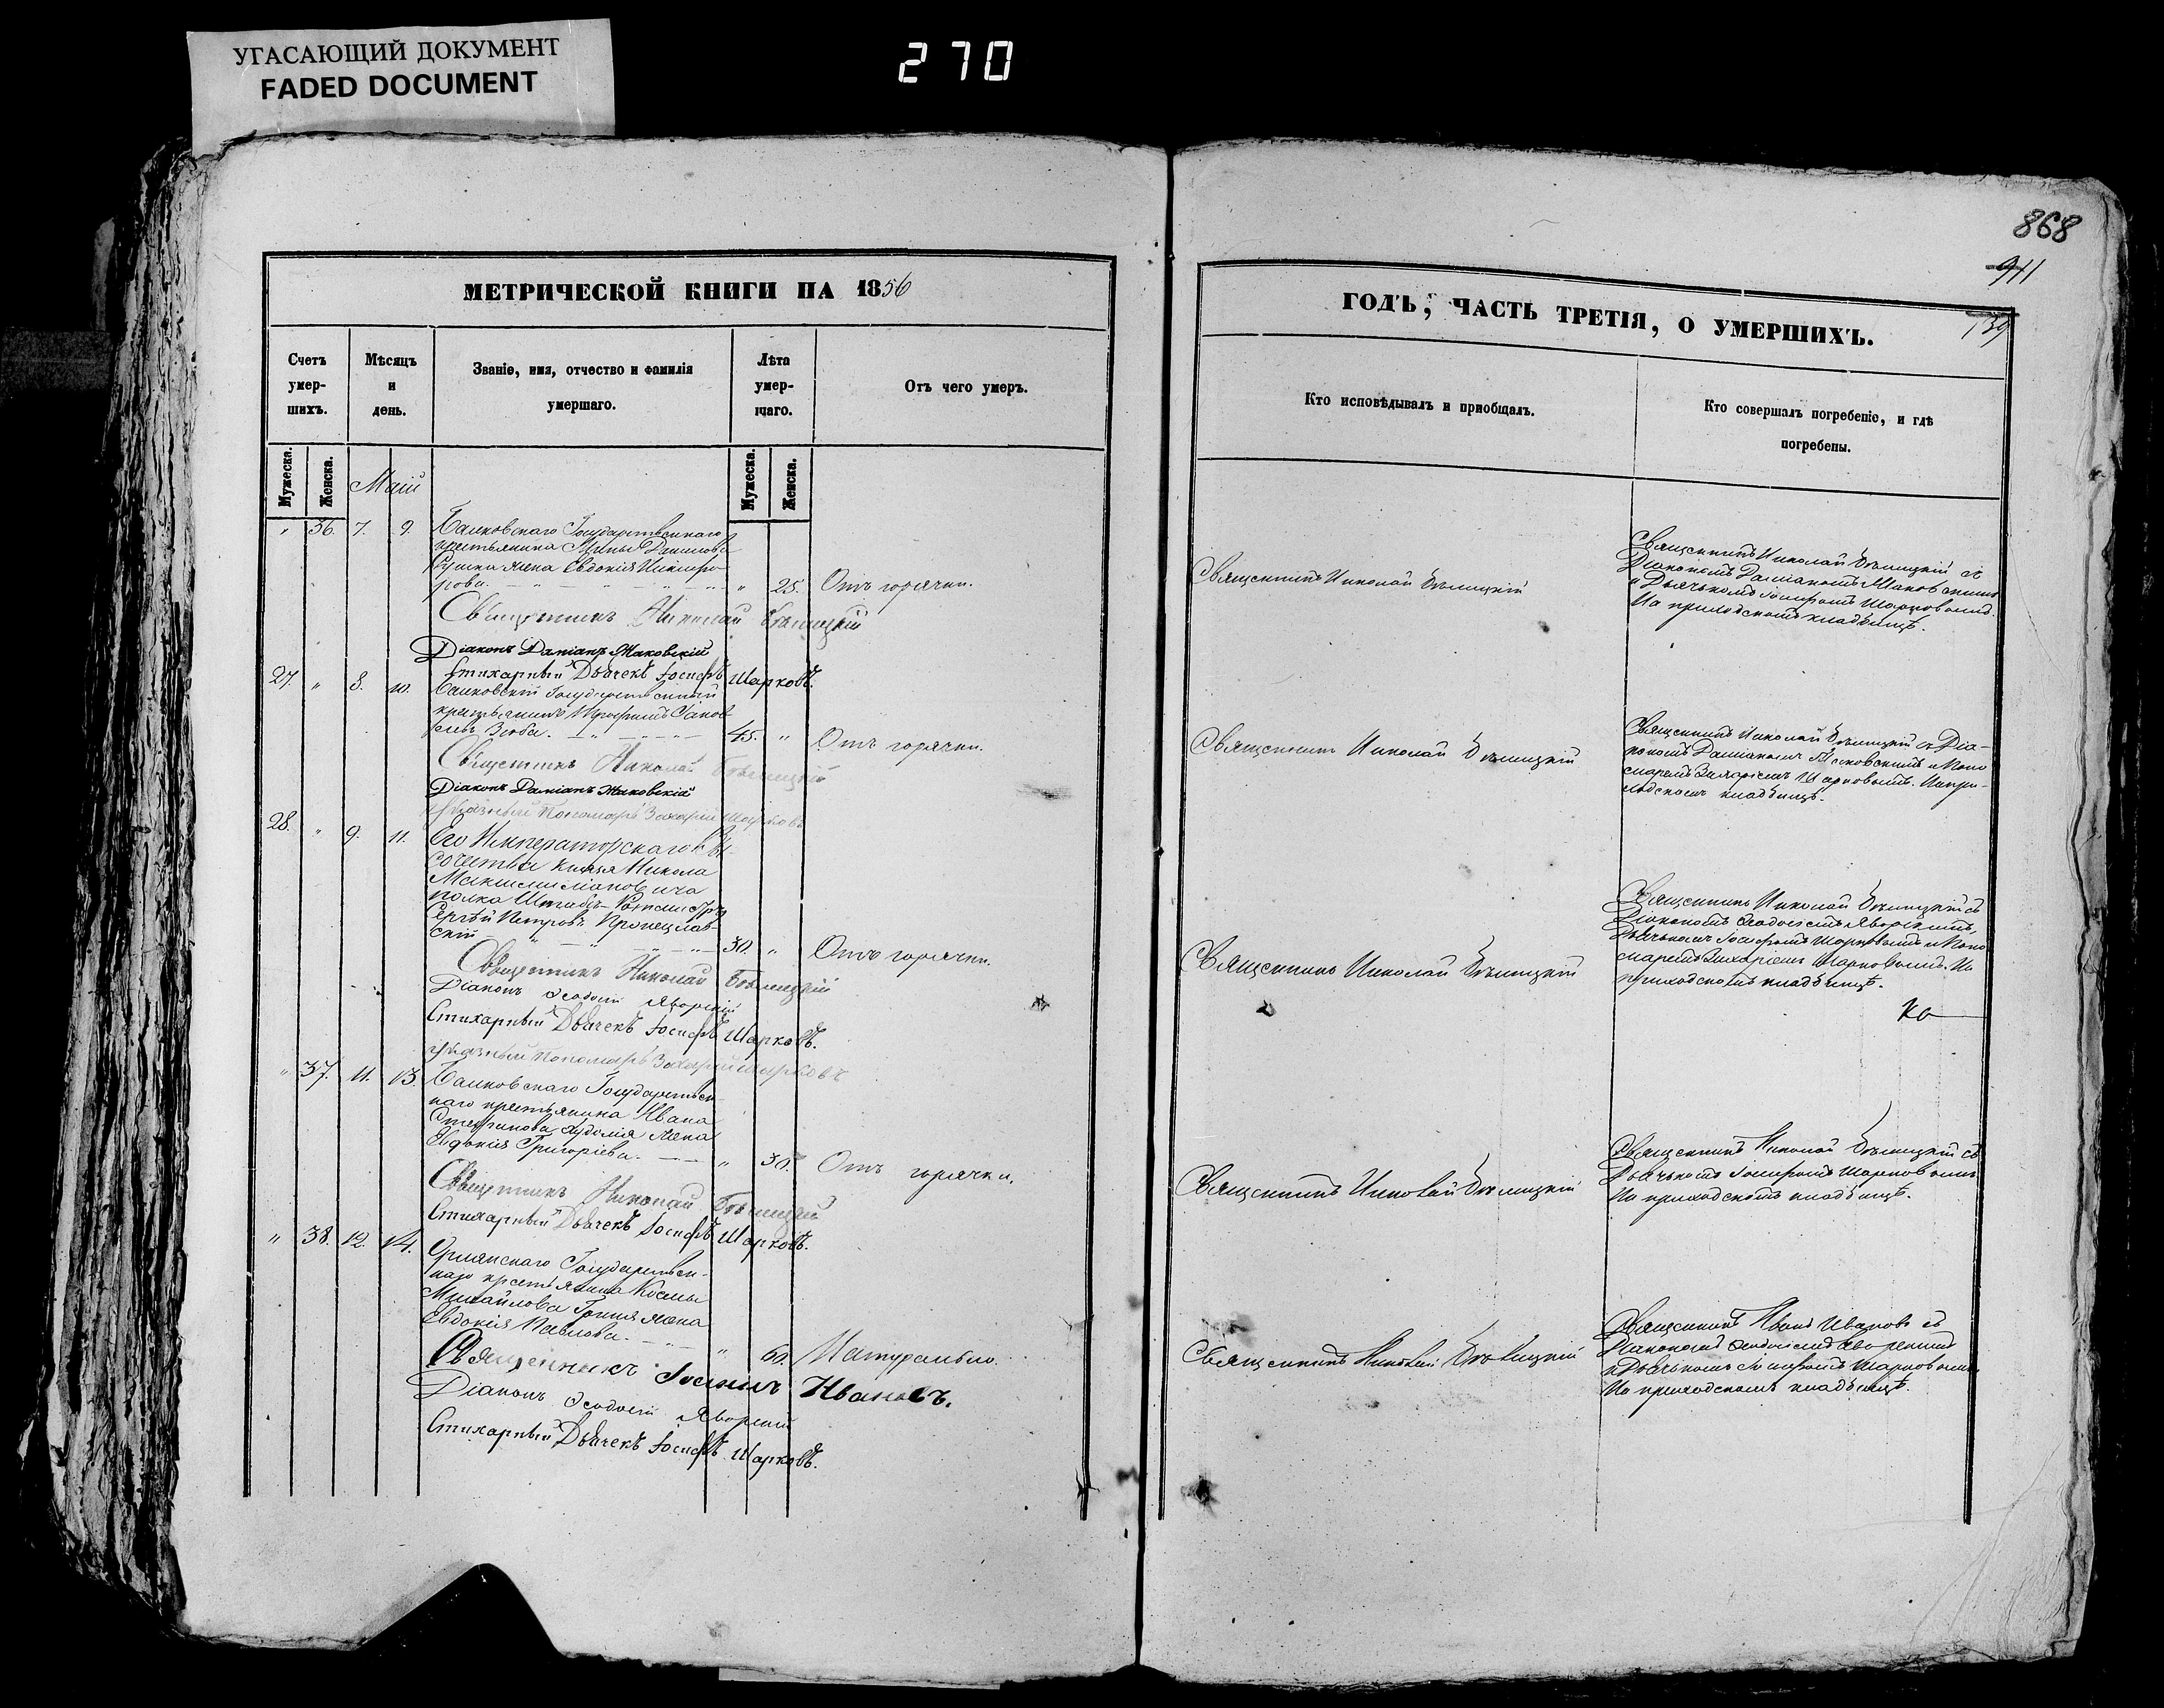 УГАСАЮЩИЙ ДОКУМЕНТ
FADED DOCUMENT
270
868
911
139
МЕТРИЧЕСКОЙ КНИГИ НА 1856
ГОДЪ, ЧАСТЬ ТРЕТІЯ, О УМЕРШИХЪ.
Счетъ умер-шихъ.
Мѣсяцъ и день.
Званіе, имя, отчество и фамилія умершаго.
Лѣта умер-шаго.
Отъ чего умеръ.
Кто исповѣдывалъ и пріобщалъ.
Кто совершалъ погребеніе, и гдѣ погребены.
Мужеска.
Женска.
Мужеска.
Женска.
Маій
" 36. 7. 9.
Государственнаго
крестьянина Данилова
жена Евдокія Никифо-
рова. " 25. Отъ горячки.
Священникъ Николай Бѣлицкій
Священникъ Николай Бѣлицкій съ
Діакономъ Даміаномъ Маковскимъ
и Дьячькомъ Іосифомъ Шарковымъ.
На приходскомъ кладбищѣ.
Священникъ Николай Бѣлицкій
Діаконъ Даміанъ Маковскій
Стихарный Дьячекъ Іосифъ Шарковъ.
27. " 8. 10.
Государственный
крестьянинъ Трофимъ Яков
левъ Зюба. 45. " Отъ горячки.
Священникъ Николай Бѣлицкій
Священникъ Николай Бѣлицкій съ Діа-
кономъ Даміаномъ Маковскимъ и Поно
маремъ Захаріемъ Шарковымъ. На при-
ходскомъ кладбищѣ.
Священникъ Николай Бѣлицкій
Діаконъ Даміанъ Маковскій
Указный Пономарь Захарій Шарковъ
28. " 9. 11.
Его Императорскаго Вы-
сочества Князя Никола
Максимиліановича
полка Штабсъ-Ротмистръ
Сергѣй Петровъ
скій 30. " Отъ горячки.
Священникъ Николай Бѣлицкій
Священникъ Николай Бѣлицкій съ
Діакономъ Ѳеодосіемъ Яворскимъ,
Дьячькомъ Іосифомъ Шарковымъ и Поно
маремъ Захаріемъ Шарковымъ. На
приходскомъ кладбищѣ.
Священникъ Николай Бѣлицкій
Діаконъ Ѳеодосій Яворскій
Стихарный Дьячекъ Іосифъ Шарковъ.
Указный Пономарь Захарій Шарковъ
" 37. 11. 13.
Государствен-
наго крестьянина Ивана
Стефанова жена
Евдокія Григоріева. " 30. Отъ горячки.
Священникъ Николай Бѣлицкій
Священникъ Николай Бѣлицкій съ
Дьячькомъ Іосифомъ Шарковымъ
На приходскомъ кладбищѣ.
Священникъ Николай Бѣлицкій
Стихарный Дьячекъ Іосифъ Шарковъ.
" 38. 12. 14.
Государствен-
наго крестьянина Космы
Михайлова жена
Евдокія Павлова. " 60. Натурально.
Священникъ Николай Бѣлицкій
Священникъ Иванъ Ивановъ съ
Діакономъ Ѳеодосіемъ Яворскимъ
и Дьячькомъ Іосифомъ Шарковымъ
На приходскомъ кладбищѣ.
Священникъ Іоаннъ Ивановъ.
Діаконъ Ѳеодосій Яворскій
Стихарный Дьячекъ Іосифъ Шарковъ.